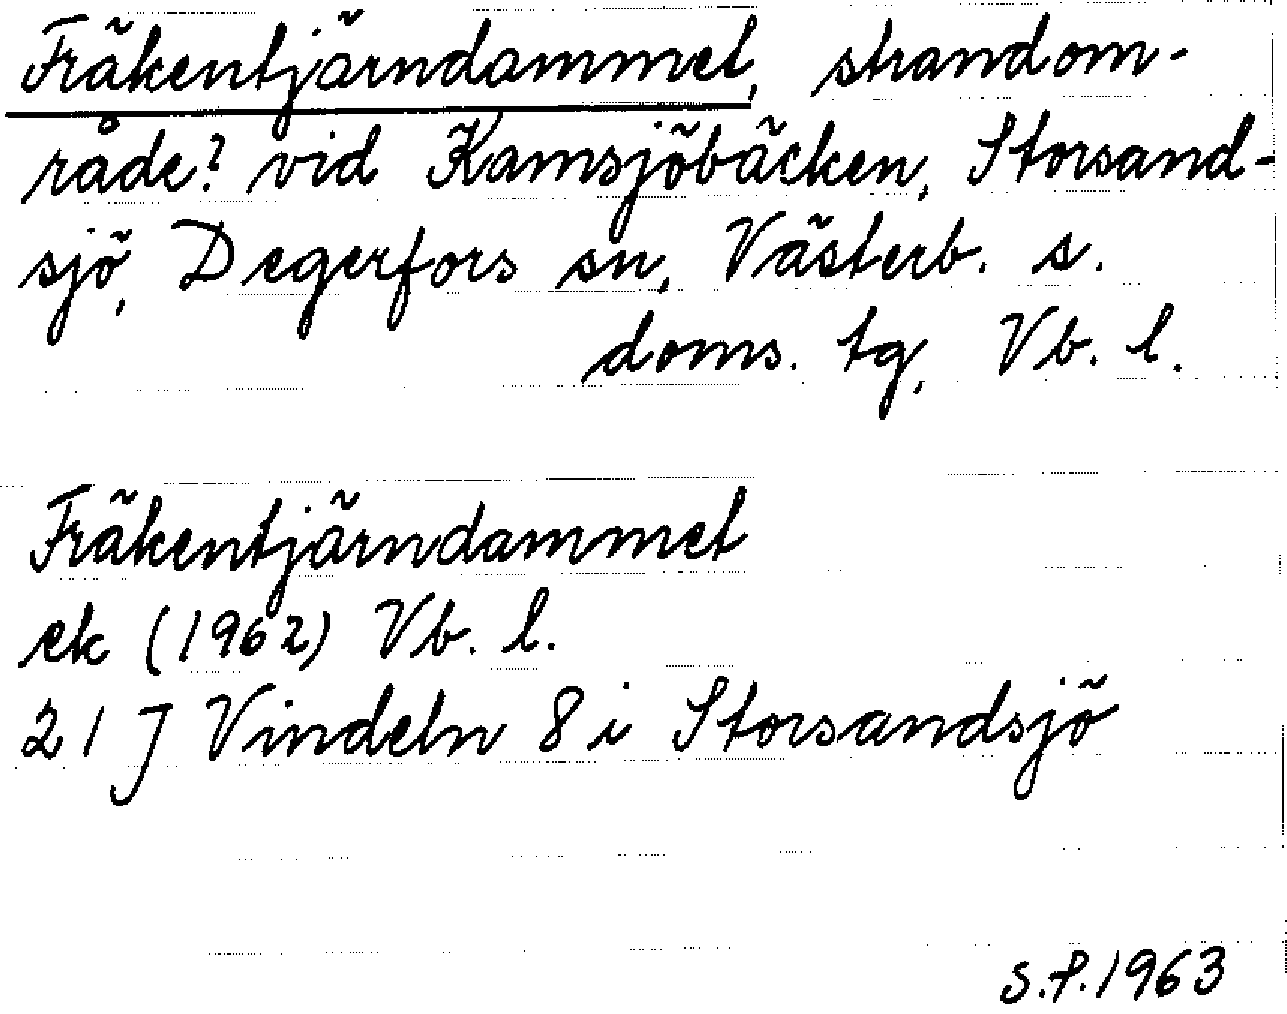 Fräkentjärndammet, strandom-
råde? vid Kamsjöbäcken, Storsand-
sjö, Degerfors sn, Västerb. s.
doms. tg, Vb. l.
Fräkentjärndammet
ek (1962) Vb. l.
21 J Vindeln 8 i Storsandsjö
S.F. 1963